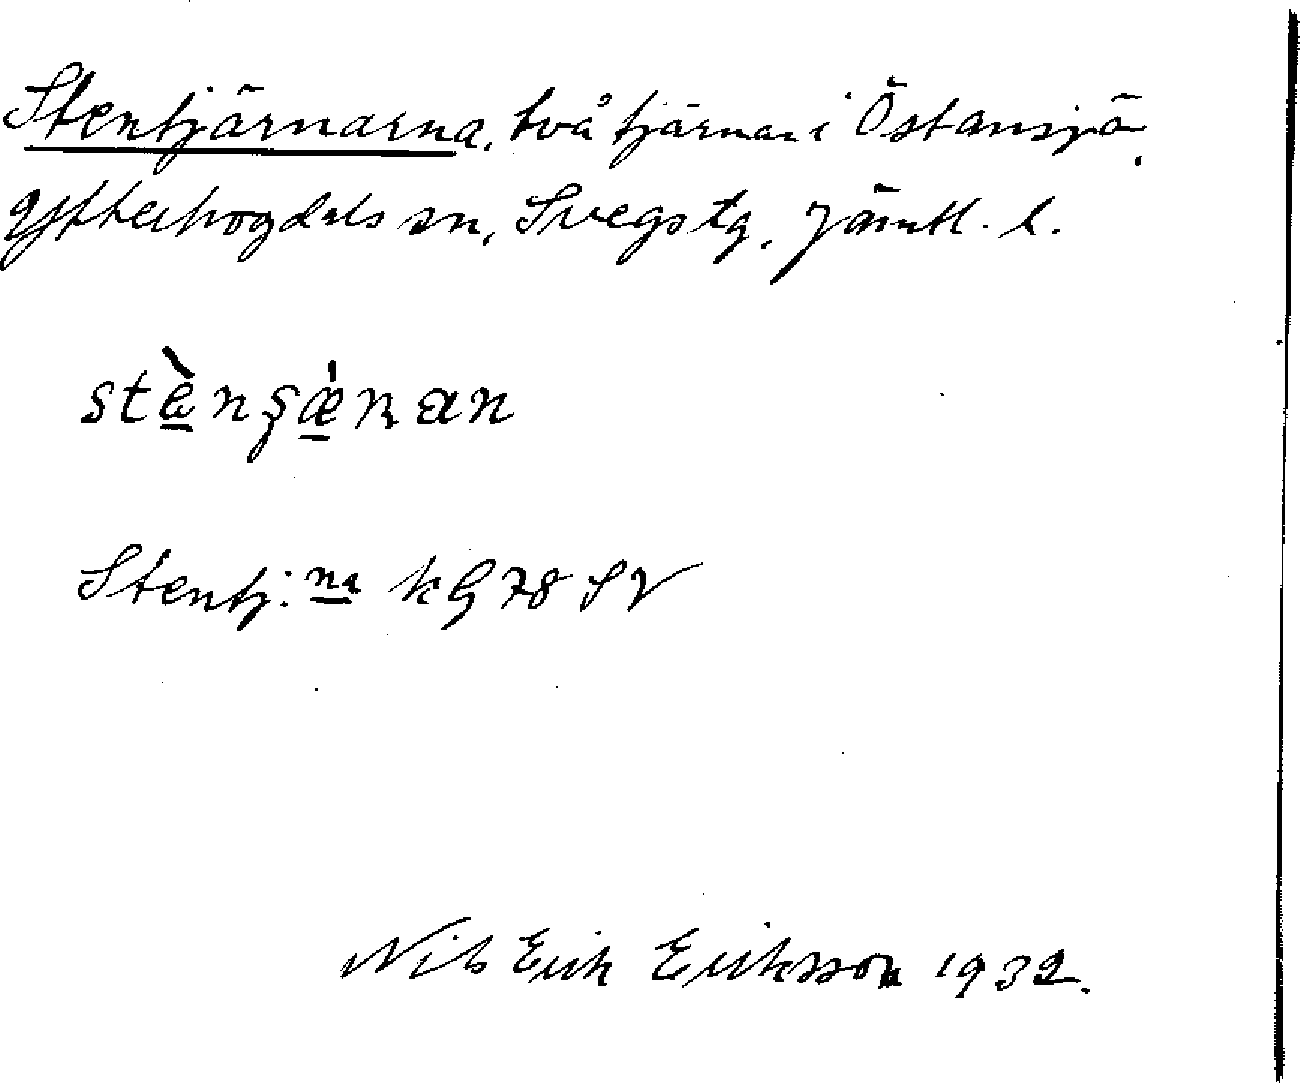 Stentjärnarna, två tjärnar i Östansjö,
Ytterhogdals sn, Svegs tg, Jämtl. l.
Stentj:na kG 78 SV
Nils Erik Eriksson 1932.